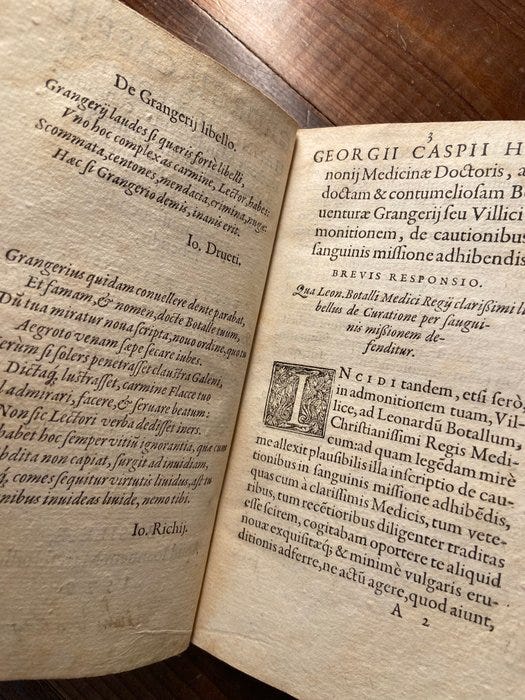 De Grangerij libello.
Grangerij laudes si quæris fortè libelli,
Vno hoc complexas carmine, Lector, habes:
Scommata, centones, mendacia, crimina, nugæ:
Hæc si Grangerio demis, inanis erit.
Io. Drueti.
Grangerius quidam conuellere dente parabat,
Et famam, & nomen, docte Botalle tuum,
Dū tua miratur noua scripta, nouo ordine, quo tu
Aegroto venam sæpe secare iubes.
si solers penetrasset claustra Galeni,
Dictaq́, lustrasset, carmine Flacce tuo
admirari, facere, & seruare beatum:
Non sic Lectori verba dedisset iners.
habet hoc semper vitiū ignorantia, quæ cum
non capiat, surgit ad inuidiam,
q́, comes sequitur virtutis liuidus, ast tu
inuideas liuide, nemo tibi.
Io. Richij.
3
GEORGII CASPII H
nonij Medicinæ Doctoris, a
doctam & contumeliosam B
uenturæ Grangerij seu Villici
monitionem, de cautionibus
sanguinis missione adhibendis
BREVIS RESPONSIO.
Qua Leon. Botalli Medici Regij clarissimi li
bellus de Curatione per sangui
nis missionem de-
fenditur.
INCIDI tandem, etsi serò,
in admonitionem tuam, Vil-
lice, ad Leonardū Botallum,
Christianissimi Regis Medi-
cum: ad quam legedam mirè
me allexit plausibilis illa inscriptio de cau-
tionibus in sanguinis missione adhibēdis,
quas cum à clarissimis Medicis, tum vete-
ribus, tum recētioribus diligenter traditas
esse scirem, cogitabam oportere te aliquid
nouæ exquisitæq́; & minimè vulgaris eru-
ditionis adferre, ne actū agere, quod aiunt,
A 2